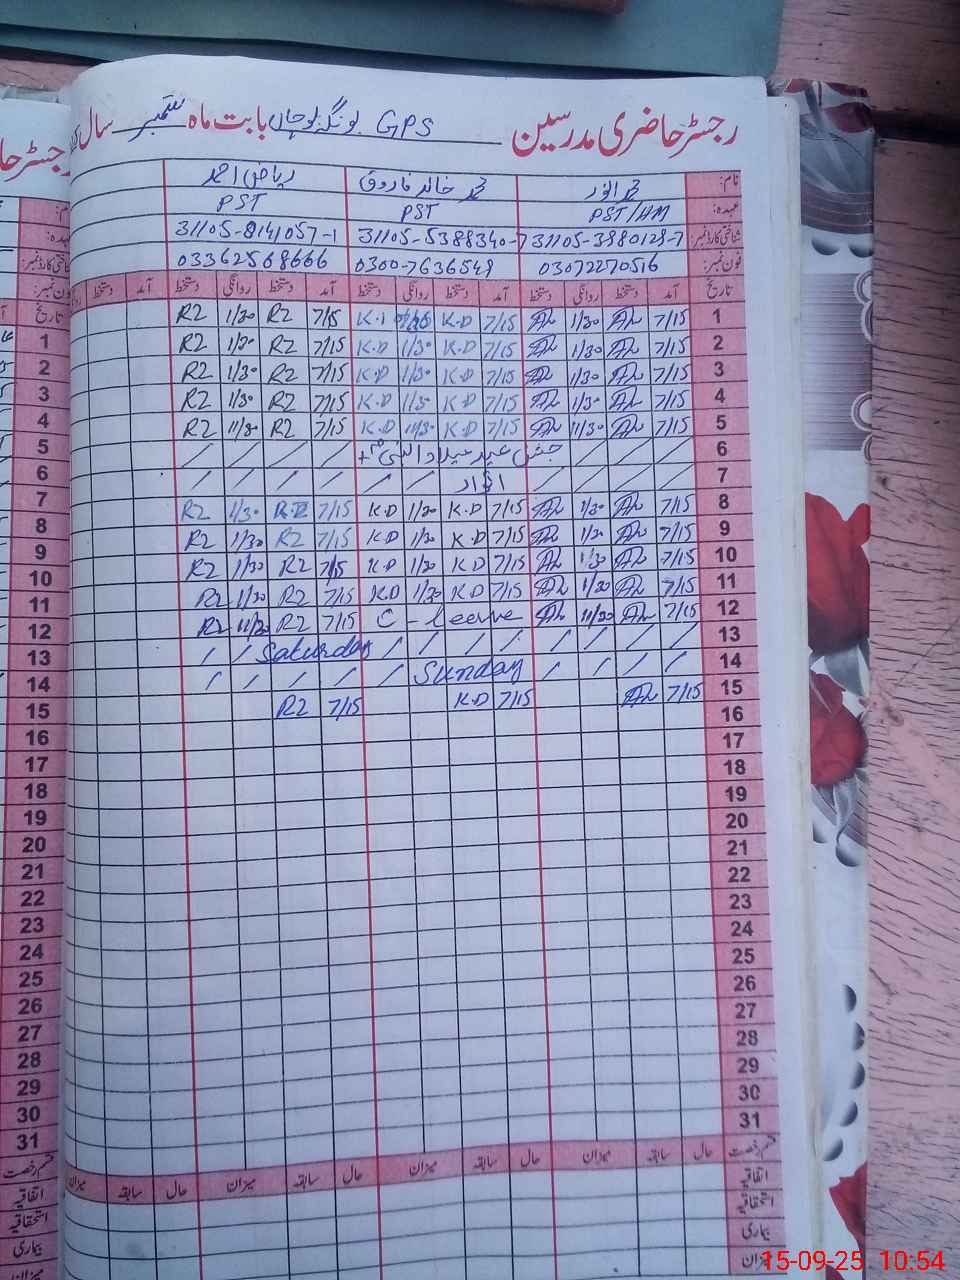 رجسٹر حاضری مدرسین GPS بونگہ بلوچاں بابت ماہ ستمبر سال
نام: محمد انور محمد خالد فاروق ریاض احمد
عہدہ: PST/HM PST PST
شناختی کارڈ نمبر: 31105-3880128-7 31105-5388340-7 31105-8141057-1
فون نمبر: 03072270516 0300-7636549 03362568666
تاریخ آمد دستخط روانگی دستخط آمد دستخط روانگی دستخط آمد دستخط روانگی دستخط آمد دستخط
1 7/15 1/30 7/15 K.D 7/15 R2 1/30 R2
2 7/15 1/30 7/15 K.D 1/30 K.D 7/15 R2 1/30 R2
3 7/15 1/30 7/15 K.D 1/30 K.D 7/15 R2 1/30 R2
4 7/15 1/30 7/15 K.D 1/30 K.D 7/15 R2 1/30 R2
5 7/15 11/30 7/15 K.D 11/30 K.D 7/15 R2 11/30 R2
6 / / / / جشن عید میلاد النبی / / / /
7 / / / / اتوار / / / / / /
8 7/15 1/30 7/15 K.D 1/30 K.D 7/15 1/30 R2
9 7/15 1/30 7/15 K.D 1/30 K.D 7/15 R2 1/30 R2
10 7/15 1/30 7/15 K.D 1/30 K.D 7/15 R2 1/30 R2
11 7/15 1/30 7/15 K.D 1/30 K.D 7/15 R2 1/30 R2
12 7/15 11/30 C - leave 7/15 R2 11/30 R2
13 / / / / / / / / Saturday / /
14 / / / / Sunday / / / / /
15 7/15 7/15 K.D 7/15 R2
16
17
18
19
20
21
22
23
24
25
26
27
28
29
30
31
قسم رخصت حال سابقہ میزان حال سابقہ میزان حال سابقہ میزان حال سابقہ میزان
اتفاقیہ
استحقاقیہ
بیماری
میزان
15-09-25 10:54